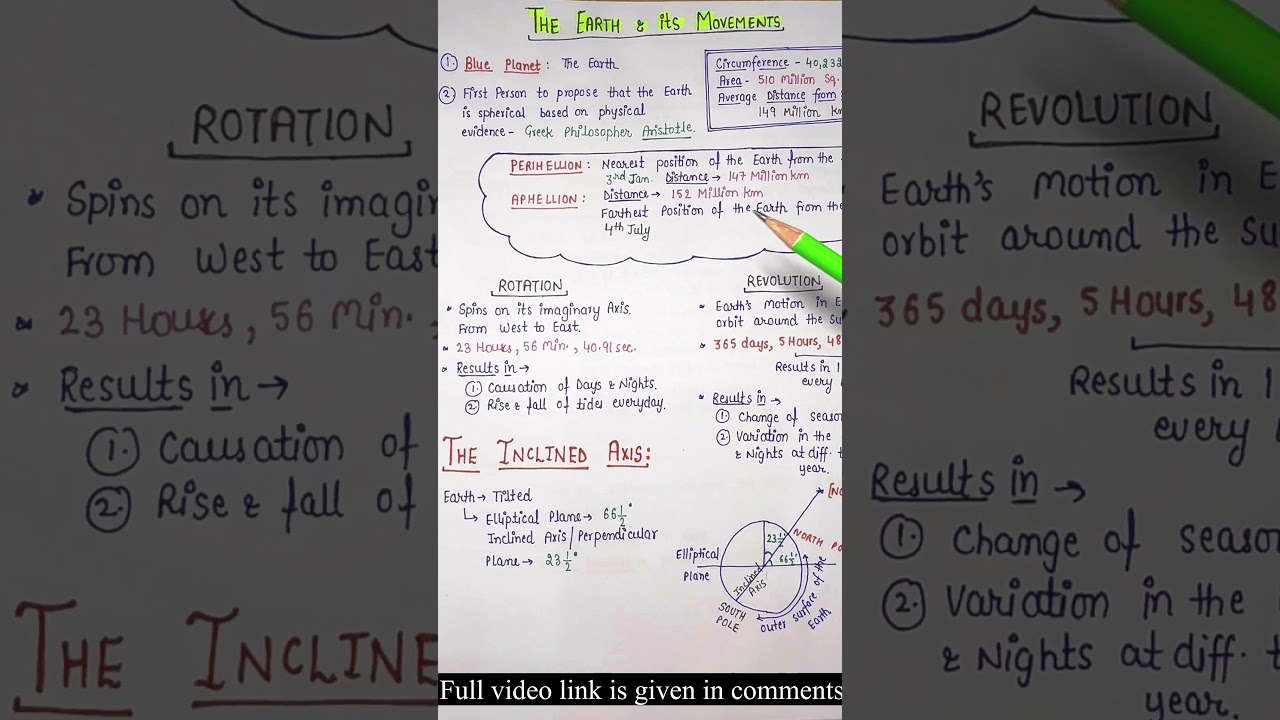 THE EARTH & its MOVEMENTS
① Blue Planet : The Earth
② First Person to propose that the Earth
is spherical based on physical
evidence - Greek Philosopher Aristotle.
Circumference - 40,232
Area - 510 Million Sq.
Average Distance from
149 Million km
PERIHELLION : Nearest position of the Earth from the
3rd Jan. Distance → 147 Million km
APHELLION : Distance → 152 Million km
Farthest Position of the Earth from the
4th July
ROTATION
* Spins on its imaginary Axis.
From West to East.
* 23 Hours, 56 Min., 40.91 sec.
* Results in →
① Causation of Days & Nights.
② Rise & fall of tides everyday.
REVOLUTION
* Earth's motion in E
orbit around the Su
* 365 days, 5 Hours, 48
Results in 1
every
* Results in →
① Change of seaso
② Variation in the
& Nights at diff. t
year.
THE INCLINED AXIS:
Earth → Tilted
Elliptical Plane → 66 1/2°
Inclined Axis / Perpendicular
Plane → 23 1/2°
[NO
NORTH PO
23 1/2
66 1/2
Elliptical
Plane
Inclined
Axis
SOUTH
POLE
outer surface of the
Earth
ROTATION
* Spins on its imagin
From West to East
* 23 Hours, 56 Min.
* Results in →
① Causation of
② Rise & fall of
THE INCLINE
REVOLUTION
Earth's motion in E
orbit around the Su
365 days, 5 Hours, 48
Results in 1
every
Results in →
① Change of seaso
② Variation in the
& Nights at diff. t
year.
Full video link is given in comments